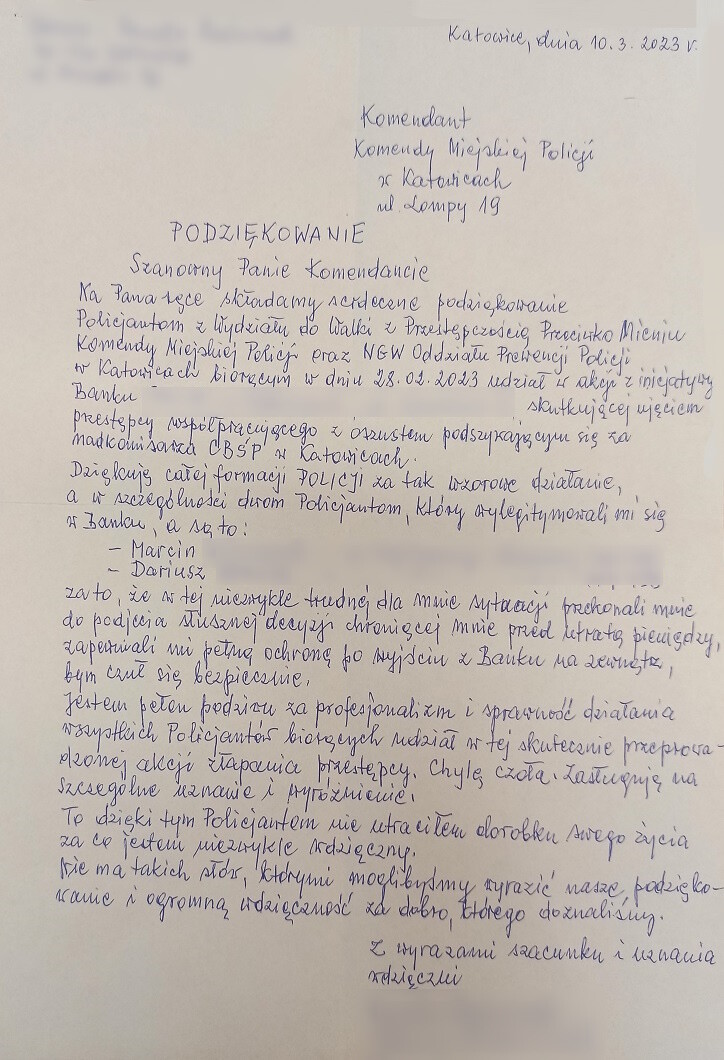 Katowice, dnia 10.3.2023 r.
Komendant
Komendy Miejskiej Policji
w Katowicach
ul. Lompy 19
PODZIĘKOWANIE
Szanowny Panie Komendancie
Na Pana ręce składamy serdeczne podziękowanie
Policjantom z Wydziału do Walki z Przestępczością Przeciwko Mieniu
Komendy Miejskiej Policji oraz NGW Oddziału Prewencji Policji
w Katowicach biorącym w dniu 28.02.2023 udział w akcji z inicjatywy
Banku skutkującej ujęciem
przestępcy współpracującego z oszustem podszywającym się za
nadkomisarza CBŚP w Katowicach.
Dziękuję całej formacji POLICJI za tak wzorowe działanie,
a w szczególności dwom Policjantom, którzy wylegitymowali mi się
w Banku, a są to:
– Marcin
– Dariusz
za to, że w tej niezwykle trudnej dla mnie sytuacji przekonali mnie
do podjęcia słusznej decyzji chroniącej mnie przed utratą pieniędzy,
zapewniali mi pełną ochronę po wyjściu z Banku na zewnątrz,
bym czuł się bezpiecznie.
Jestem pełen podziwu za profesjonalizm i sprawność działania
wszystkich Policjantów biorących udział w tej skutecznie przeprowa-
dzonej akcji złapania przestępcy. Chylę czoła. Zasługują na
szczególne uznanie i wyróżnienie.
To dzięki tym Policjantom nie utraciłem dorobku swego życia
za co jestem niezwykle wdzięczny.
Nie ma takich słów, którymi moglibyśmy wyrazić nasze podzięko-
wanie i ogromną wdzięczność za dobro, którego doznaliśmy.
Z wyrazami szacunku i uznania
wdzięczni